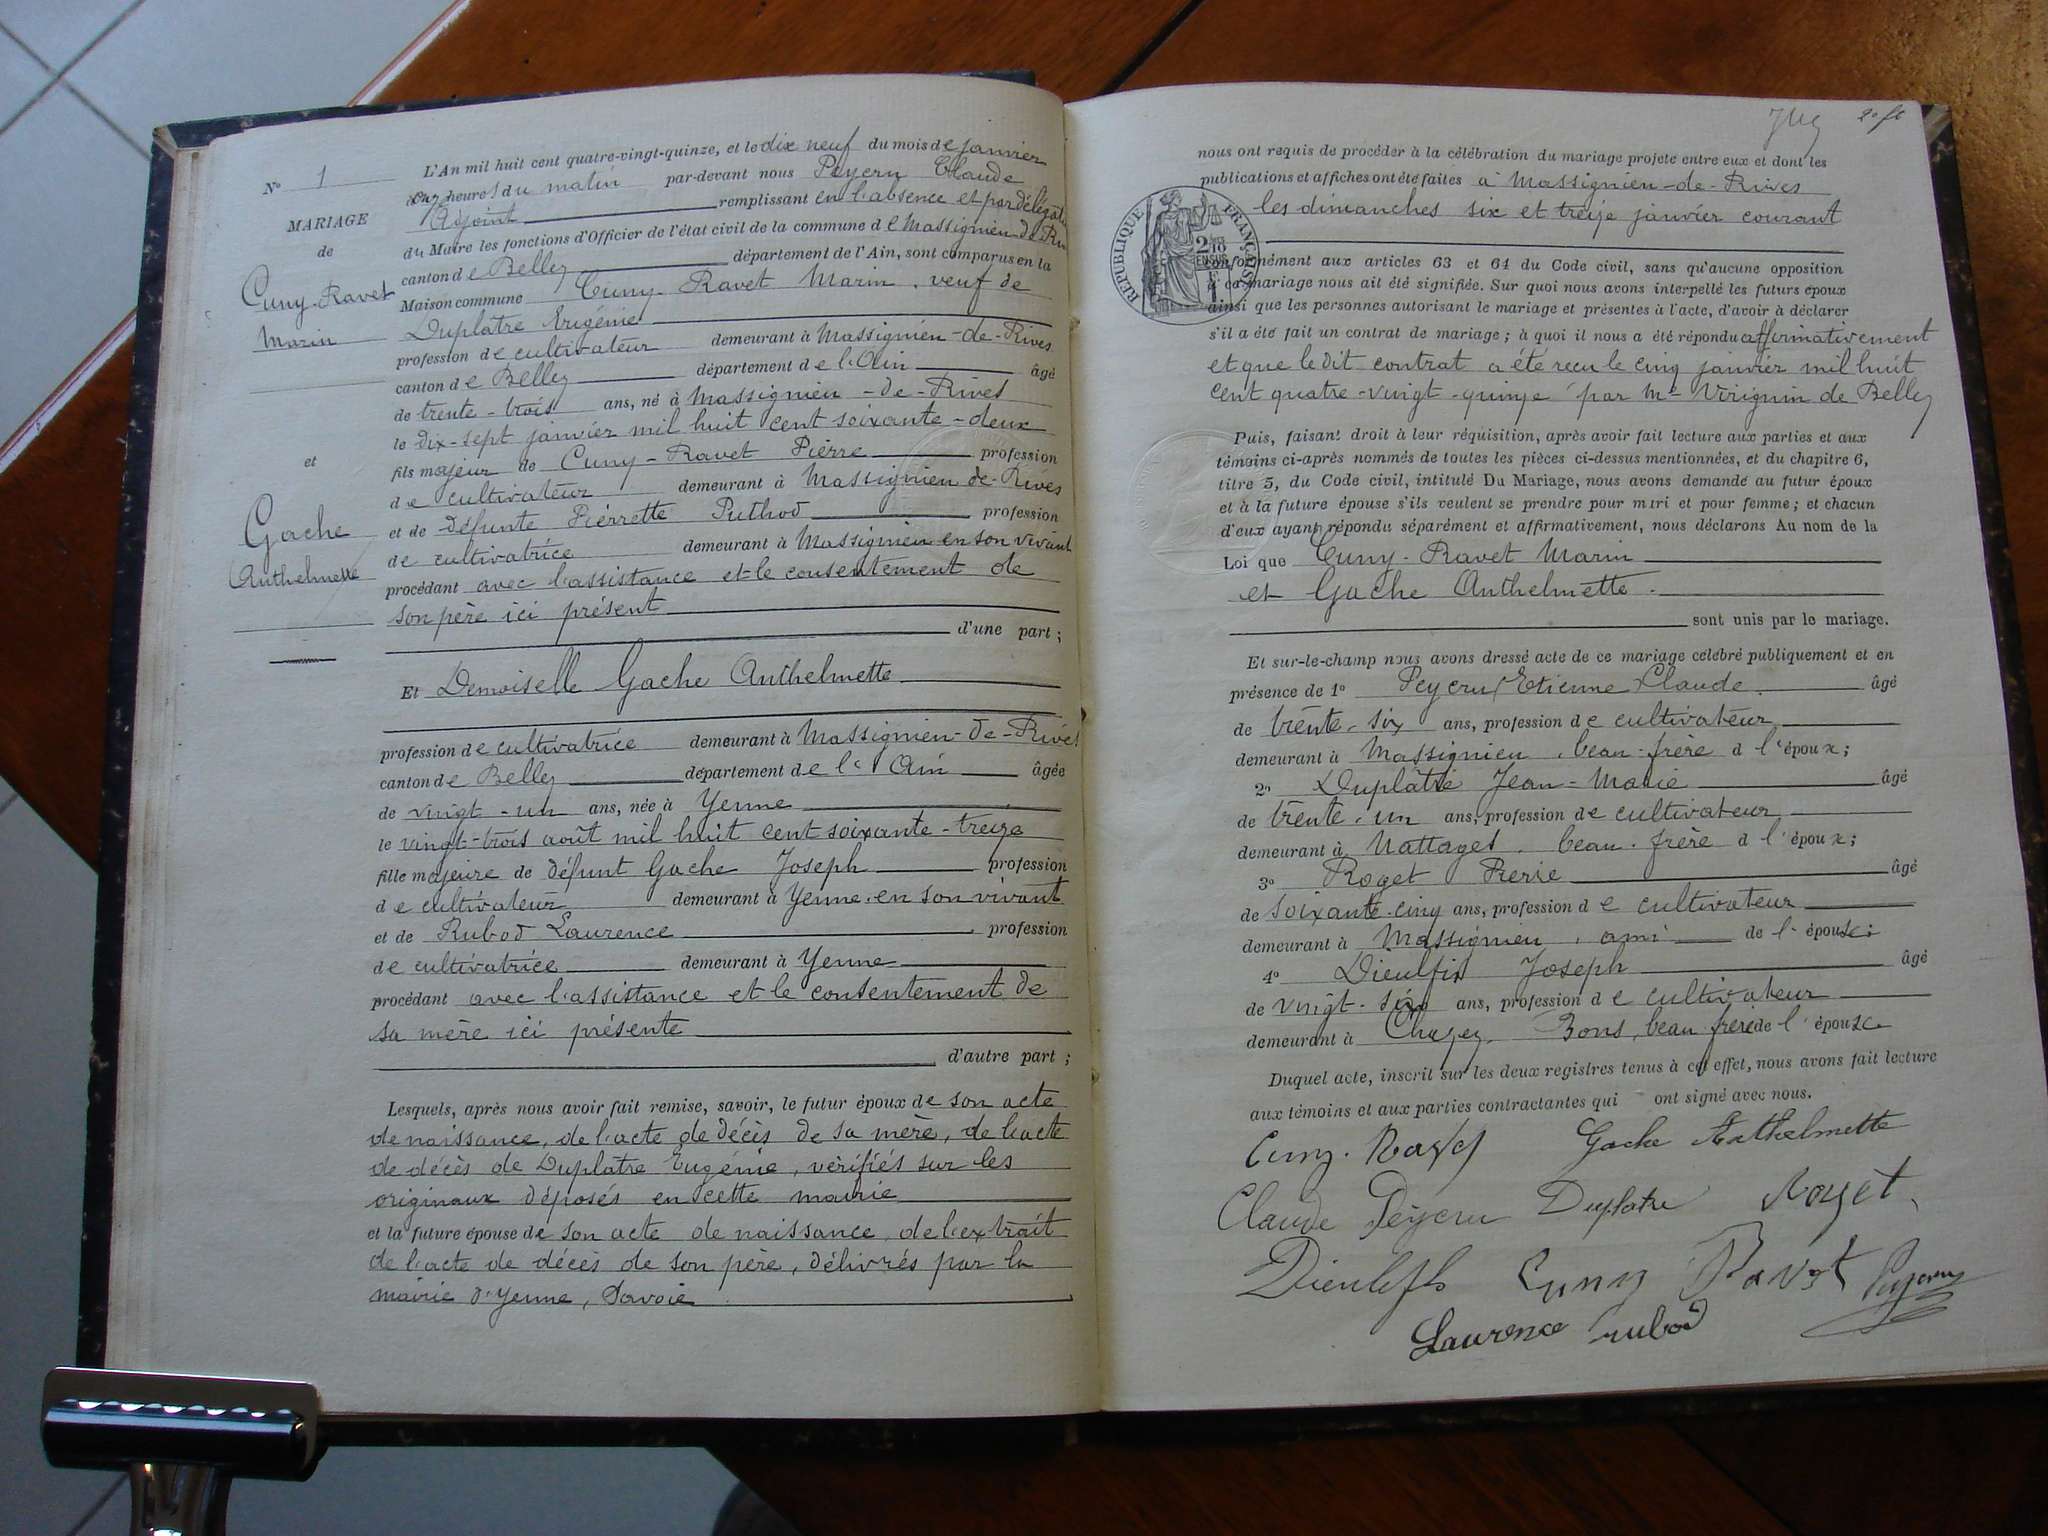 N° 1
MARIAGE
de
Cuny-Ravet
Marin
et
Gache
Anthelmette
L'An mil huit cent quatre-vingt-quinze, et le dix neuf du mois de janvier
à onze heures du matin par-devant nous Peycru Claude
Adjoint remplissant en l'absence et par délégation
du Maire les fonctions d'Officier de l'état civil de la commune de Massignieu-de-Rives
canton de Belley département de l'Ain, sont comparus en la
Maison commune Cuny-Ravet Marin, veuf de
Duplatre Eugénie
profession de cultivateur demeurant à Massignieu-de-Rives
canton de Belley département de l'Ain âgé
de trente-trois ans, né à Massignieu-de-Rives
le dix-sept janvier mil huit cent soixante-deux
fils majeur de Cuny-Ravet Pierre profession
de cultivateur demeurant à Massignieu-de-Rives
et de défunte Pierrette Puthod profession
de cultivatrice demeurant à Massignieu en son vivant
procédant avec l'assistance et le consentement de
son père ici présent
d'une part;
Et Demoiselle Gache Anthelmette
profession de cultivatrice demeurant à Massignieu-de-Rives
canton de Belley département de l'Ain âgée
de vingt-un ans, née à Yenne
le vingt-trois août mil huit cent soixante-treize
fille majeure de défunt Gache Joseph profession
de cultivateur demeurant à Yenne en son vivant
et de Rubod Laurence profession
de cultivatrice demeurant à Yenne
procédant avec l'assistance et le consentement de
sa mère ici présente
d'autre part;
Lesquels, après nous avoir fait remise, savoir, le futur époux de son acte
de naissance, de l'acte de décès de sa mère, de l'acte
de décès de Duplatre Eugénie, vérifiés sur les
originaux déposés en cette mairie
et la future épouse de son acte de naissance, de l'extrait
de l'acte de décès de son père, délivrés par la
mairie d'Yenne, Savoie
nous ont requis de procéder à la célébration du mariage projeté entre eux et dont les
publications et affiches ont été faites à Massignieu-de-Rives
les dimanches six et treize janvier courant
RÉPUBLIQUE FRANÇAISE
conformément aux articles 63 et 64 du Code civil, sans qu'aucune opposition
à ce mariage nous ait été signifiée. Sur quoi nous avons interpellé les futurs époux
ainsi que les personnes autorisant le mariage et présentes à l'acte, d'avoir à déclarer
s'il a été fait un contrat de mariage; à quoi il nous a été répondu affirmativement
et que le dit contrat a été reçu le cinq janvier mil huit
cent quatre-vingt-quinze par Me Virignin de Belley
Puis, faisant droit à leur réquisition, après avoir fait lecture aux parties et aux
témoins ci-après nommés de toutes les pièces ci-dessus mentionnées, et du chapitre 6,
titre 5, du Code civil, intitulé Du Mariage, nous avons demandé au futur époux
et à la future épouse s'ils veulent se prendre pour mari et pour femme; et chacun
d'eux ayant répondu séparément et affirmativement, nous déclarons Au nom de la
Loi que Cuny-Ravet Marin
et Gache Anthelmette
sont unis par le mariage.
Et sur-le-champ nous avons dressé acte de ce mariage célébré publiquement et en
présence de 1° Peycru Etienne Claude âgé
de trente-six ans, profession de cultivateur
demeurant à Massignieu, beau-frère d l'époux;
2° Duplâtre Jean-Marie âgé
de trente-un ans, profession de cultivateur
demeurant à Nattages, beau-frère d l'époux;
3° Roget Pierre âgé
de soixante-cinq ans, profession de cultivateur
demeurant à Massignieu, ami de l'épouse;
4° Dieulfis Joseph âgé
de vingt-six ans, profession de cultivateur
demeurant à Chazey-Bons, beau frère de l'épouse
Duquel acte, inscrit sur les deux registres tenus à cet effet, nous avons fait lecture
aux témoins et aux parties contractantes qui ont signé avec nous.
Cuny-Ravet Gache Anthelmette
Claude Peycru Duplatre Roget
Cuny Ravet Peycru
Laurence rubod